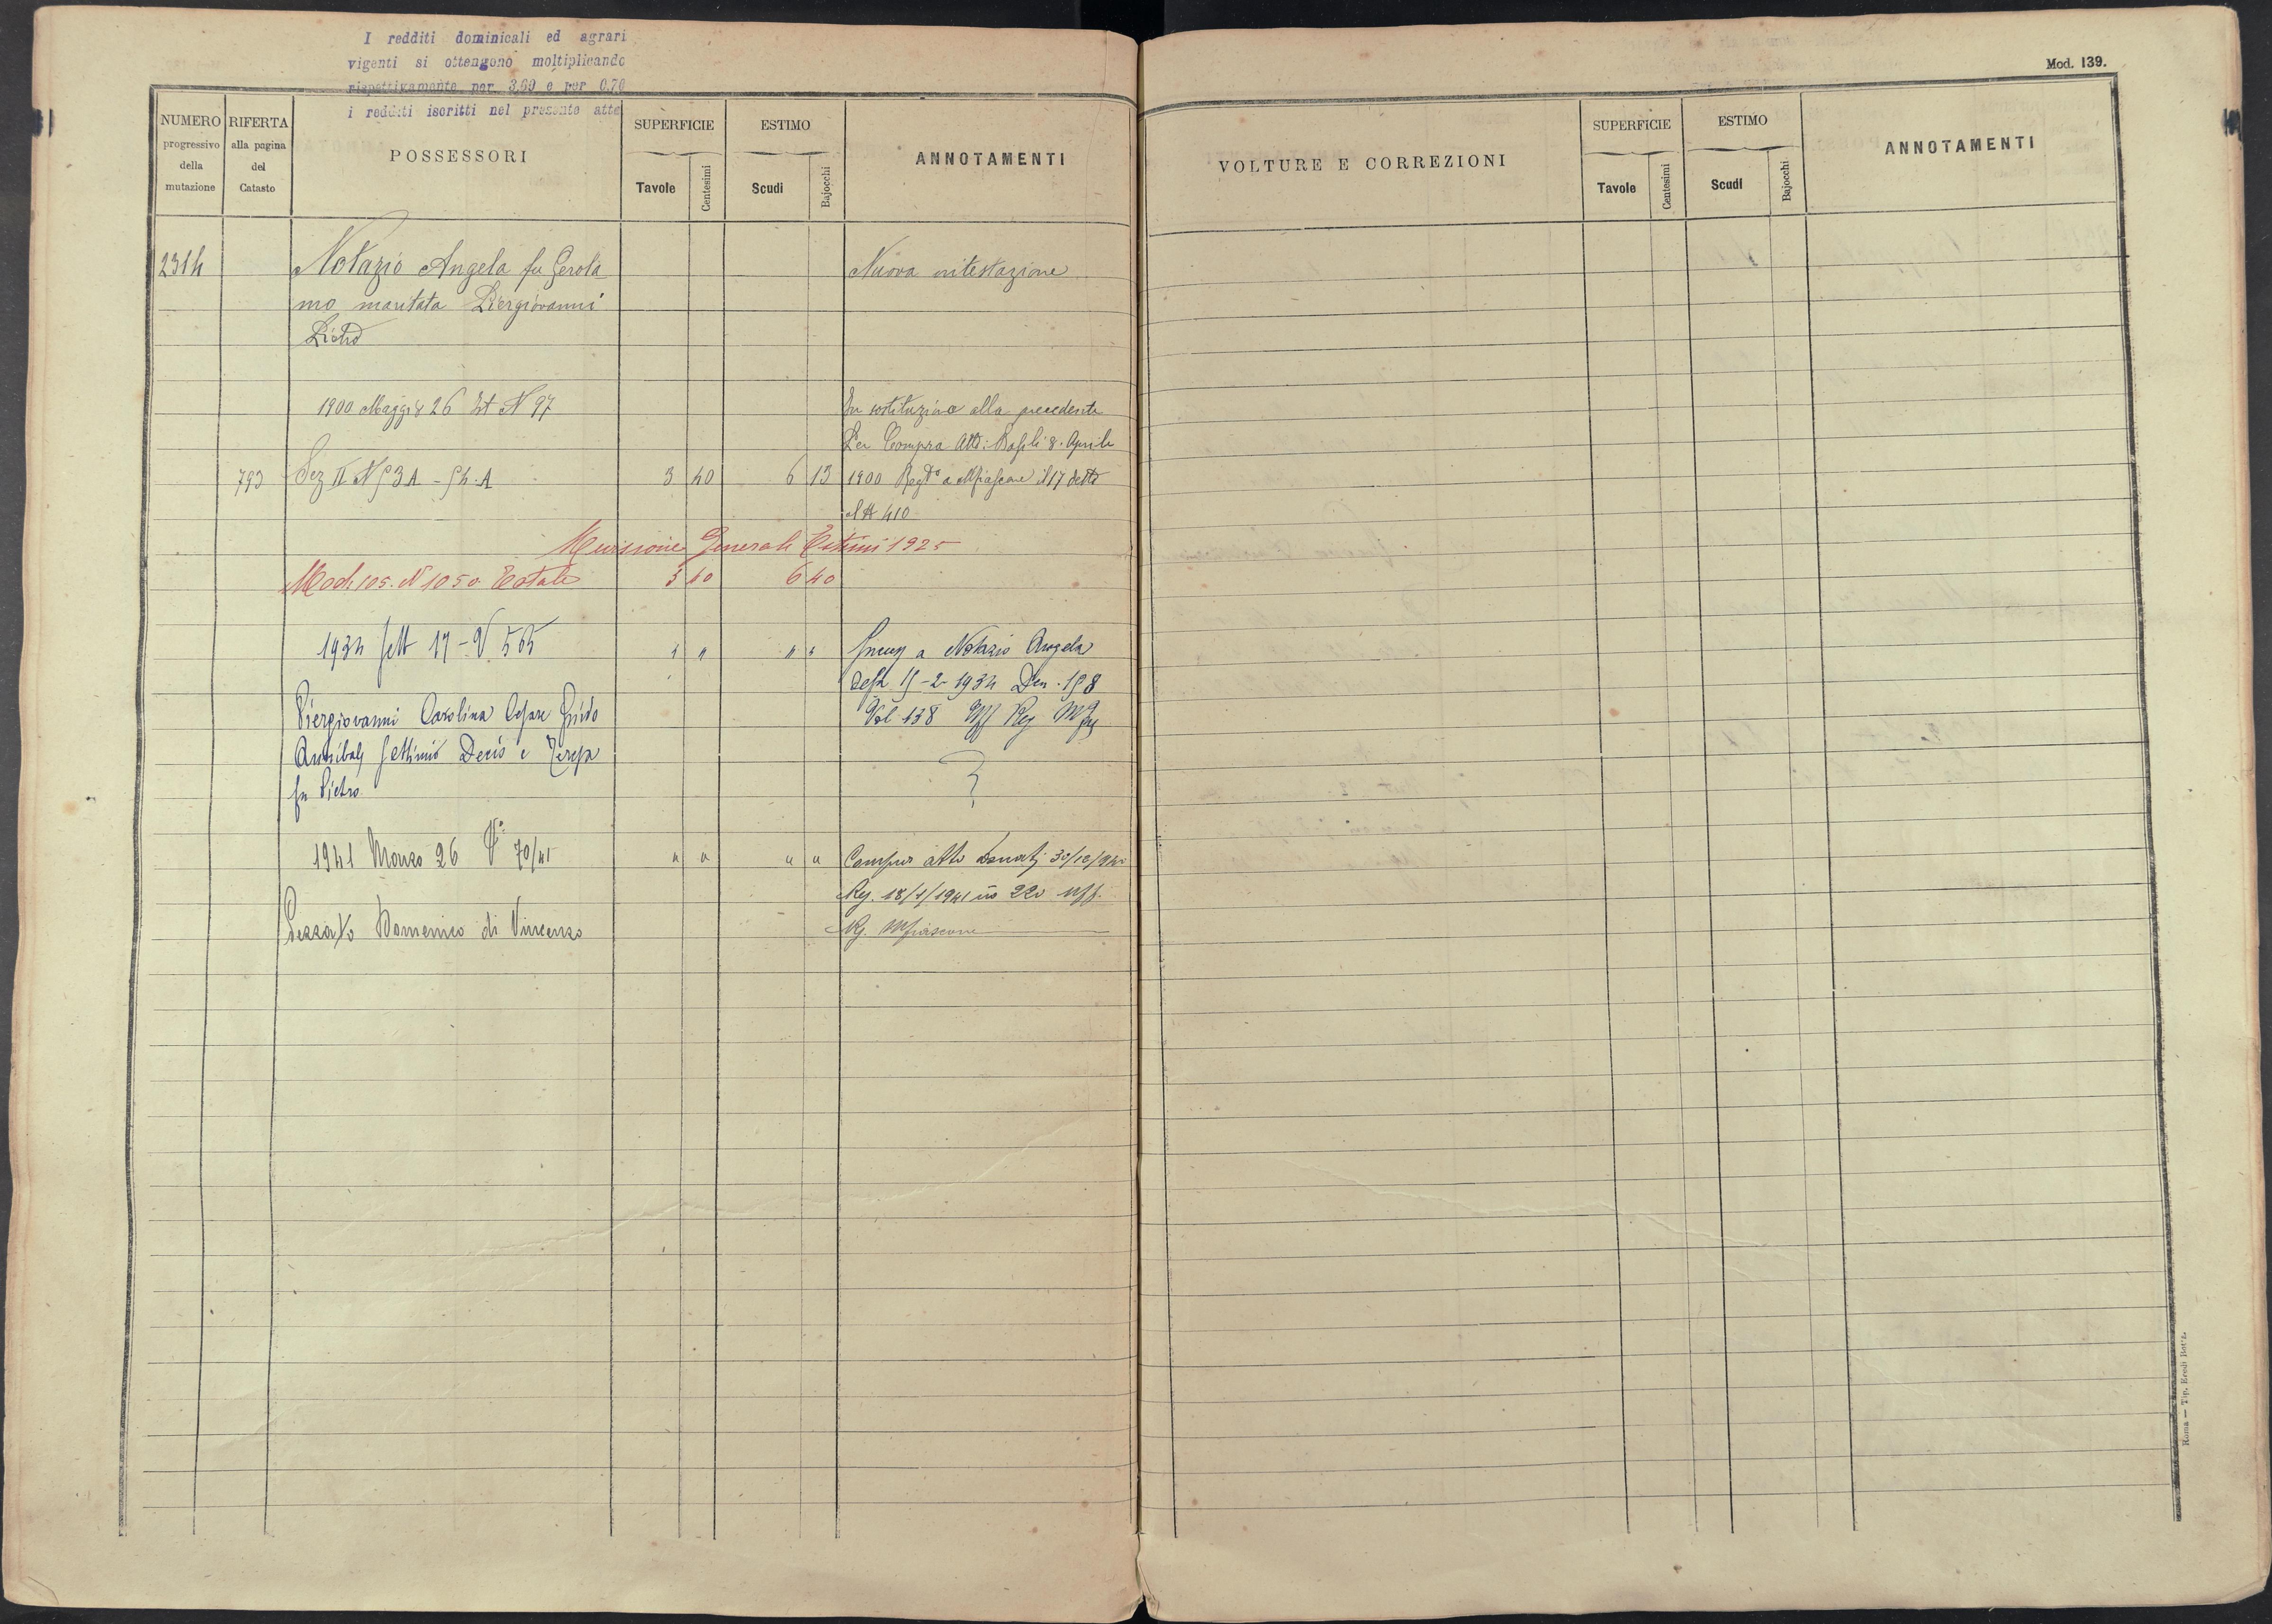 I redditi dominicali ed agrari
vigenti si ottengono moltiplicando
rispettivamente per 3,60 e per 0,70
i redditi iscritti nel presente atte
Mod. 139.
NUMERO progressivo della mutazione
RIFERTA alla pagina del Catasto
POSSESSORI
SUPERFICIE
Tavole Centesimi
ESTIMO
Scudi Bajocchi
ANNOTAMENTI
VOLTURE E CORREZIONI
SUPERFICIE
Tavole Centesimi
ESTIMO
Scudi Bajocchi
ANNOTAMENTI
2314 Notazio Angela fu Gerola Nuova intestazione
mo maritata Piergiovanni
Pietro
1900 Maggio 26 N 97 In sostituzione alla precedente
Per Compra Atti: Basili 8. Aprile
793 Sez II N 53A - 54.A 3 40 6 13 1900 Regto a Mfiascone il 17 detto
al N 410
Revisione Generale Estimi 1925
Mod. 105. N 1050 Totale 3 40 6 40
1934 Sett 17 - V 565 " " " " Succ a Notazio Angela
15-2-1934 Den. 158
Piergiovanni Carolina Cesare Guido Vol 138 Uff Reg
Annibale Settimio Decio e Teresa
fu Pietro
1941 Marzo 26 V° 70/41 " " " " Compra atto Donati 30/12/940
Reg. 18/1/1941 no 220 Uff.
Pezzato Domenico di Vincenzo Rg. Mfiascone
Roma — Tip. Eredi Botta.